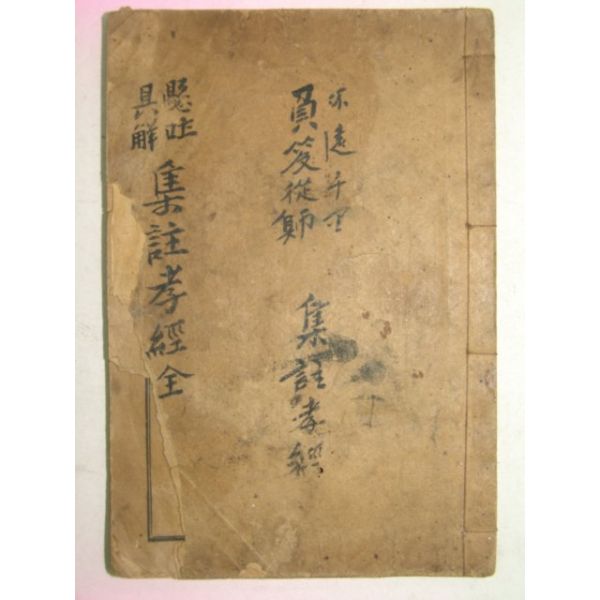 不遠千里
負笈從師
集註孝經
懸吐
具觧
集註孝經全